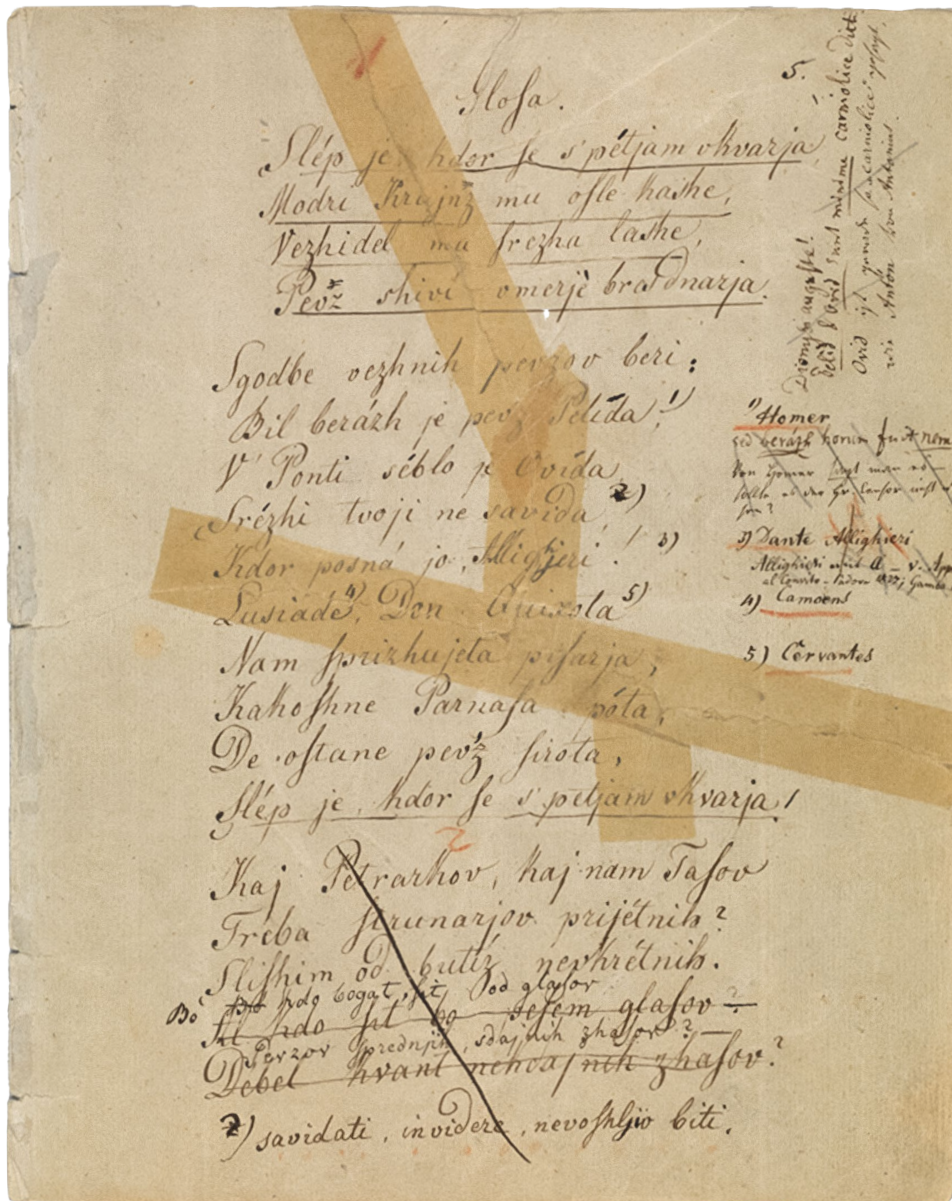 5.
Glosa.
Slép je, kdor ſe s' pétjam vkvarja,
Modri Krajnz mu oſle kashe,
Vezhidel mu ſrezha lashe,
Pevz shiví vmerjè brasdnarja.
Sgodbe vezhnih pevzov beri:
Bil berázh je pevz Pelída! 1)
V' Ponti séblo je Ovída,
Srézhi tvoji ne savída 2)
Kdor posná jo, Alligjeri! 3)
Lusiade 4), Don Quixota 5)
Nam ſprizhujeta piſarja,
Kakoſhne Parnaſa póta,
De oſtane pevz ſiróta,
Slép je, kdor ſe s' petjam vkvarja!
Kaj Petrarkov, kaj nam Taſov
Treba ſtrunarjov prijétnih?
Sliſhim od butíz nevkrétnih.
Bo kdo bogat, ſit, od glaſov
kdo ſit bo glaſov?
Pevzov prednjih, sdajnih zhaſov?
Debel kvant nekdajnih zhaſov?
2) savidati, invidere, nevoſhljiv biti.
minime carniolice
Ovid
1) Homer
sed berázh horum fuit nem
von Homer sagt man es
3) Dante Allighieri
Allighieri mit A
4) Camoens
5) Cervantes